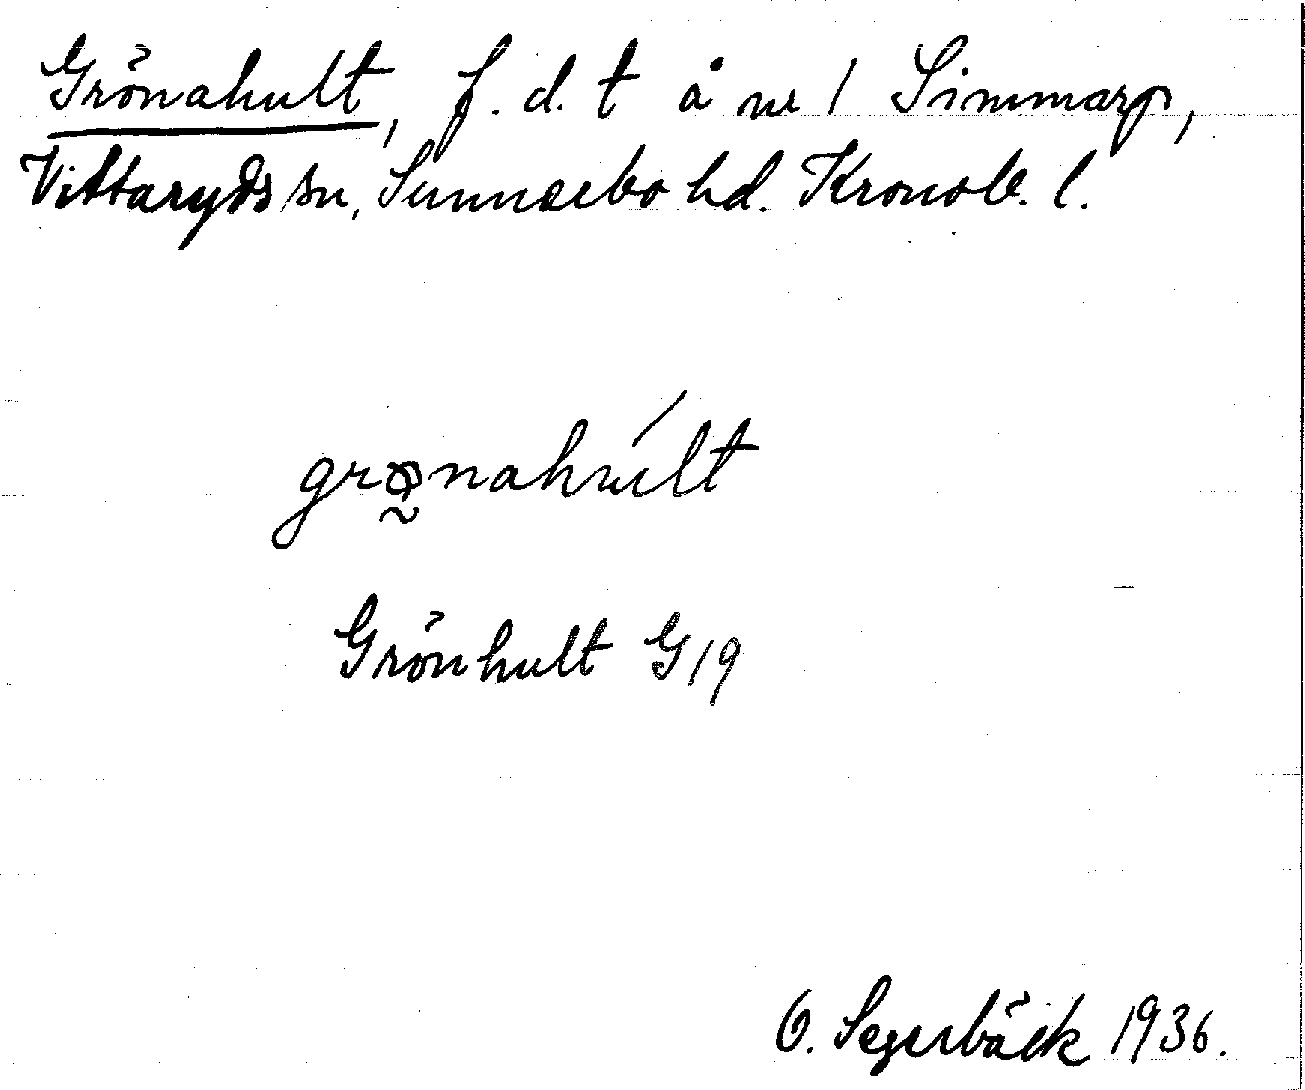 Grönahult, f. d. t å nr 1 Simmarp,
Vittaryds sn, Sunnerbo hd. Kronob. l.
grønahúlt
Grönhult G 19
O. Segerbäck 1936.